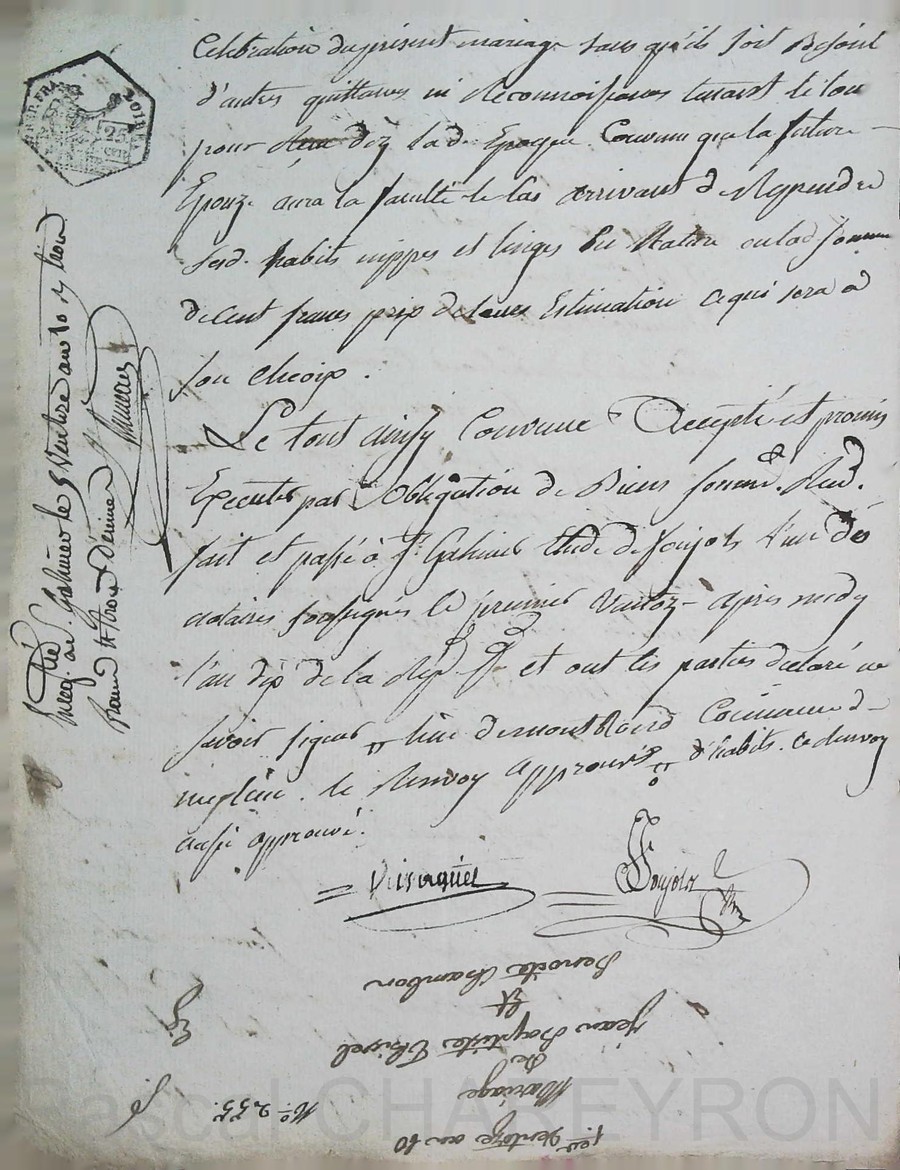 Celebration du present mariage sans qu'ils soit Besoin
d'autres quittances ni Reconnoissances tenant le lou
pour dez lad. Epoque. Convenu que la future
Epouze aura la faculté le cas arrivant de Reprendre
sesd. habits nippes et linges En Nature ou lad. somme
de cent francs prix de leurs Estimation ce qui sera à
son choix.
Le tout ainsy Convenu Accepté et promis
Executer par Obligation de Biens
fait et passé à St. Galmier Etude de Soujols l'un des
notaires soussignés le premier Ventoz- après midy
l'an dix de la Rep. et ont les parties declaré ne
savoir signer, lieu de Commune de
le Renvoy Approuvé. d'habits. ce Renvoy
aussi approuvé.
Soujolz
Enreg. à St. Galmier le 5 Ventose an 10
FRA
25
CENT
1er Ventoze an 10
Mariage
De
Jean Baptiste
Et
Benoite Chambon
No. 255.
Pascal CHAREYRON